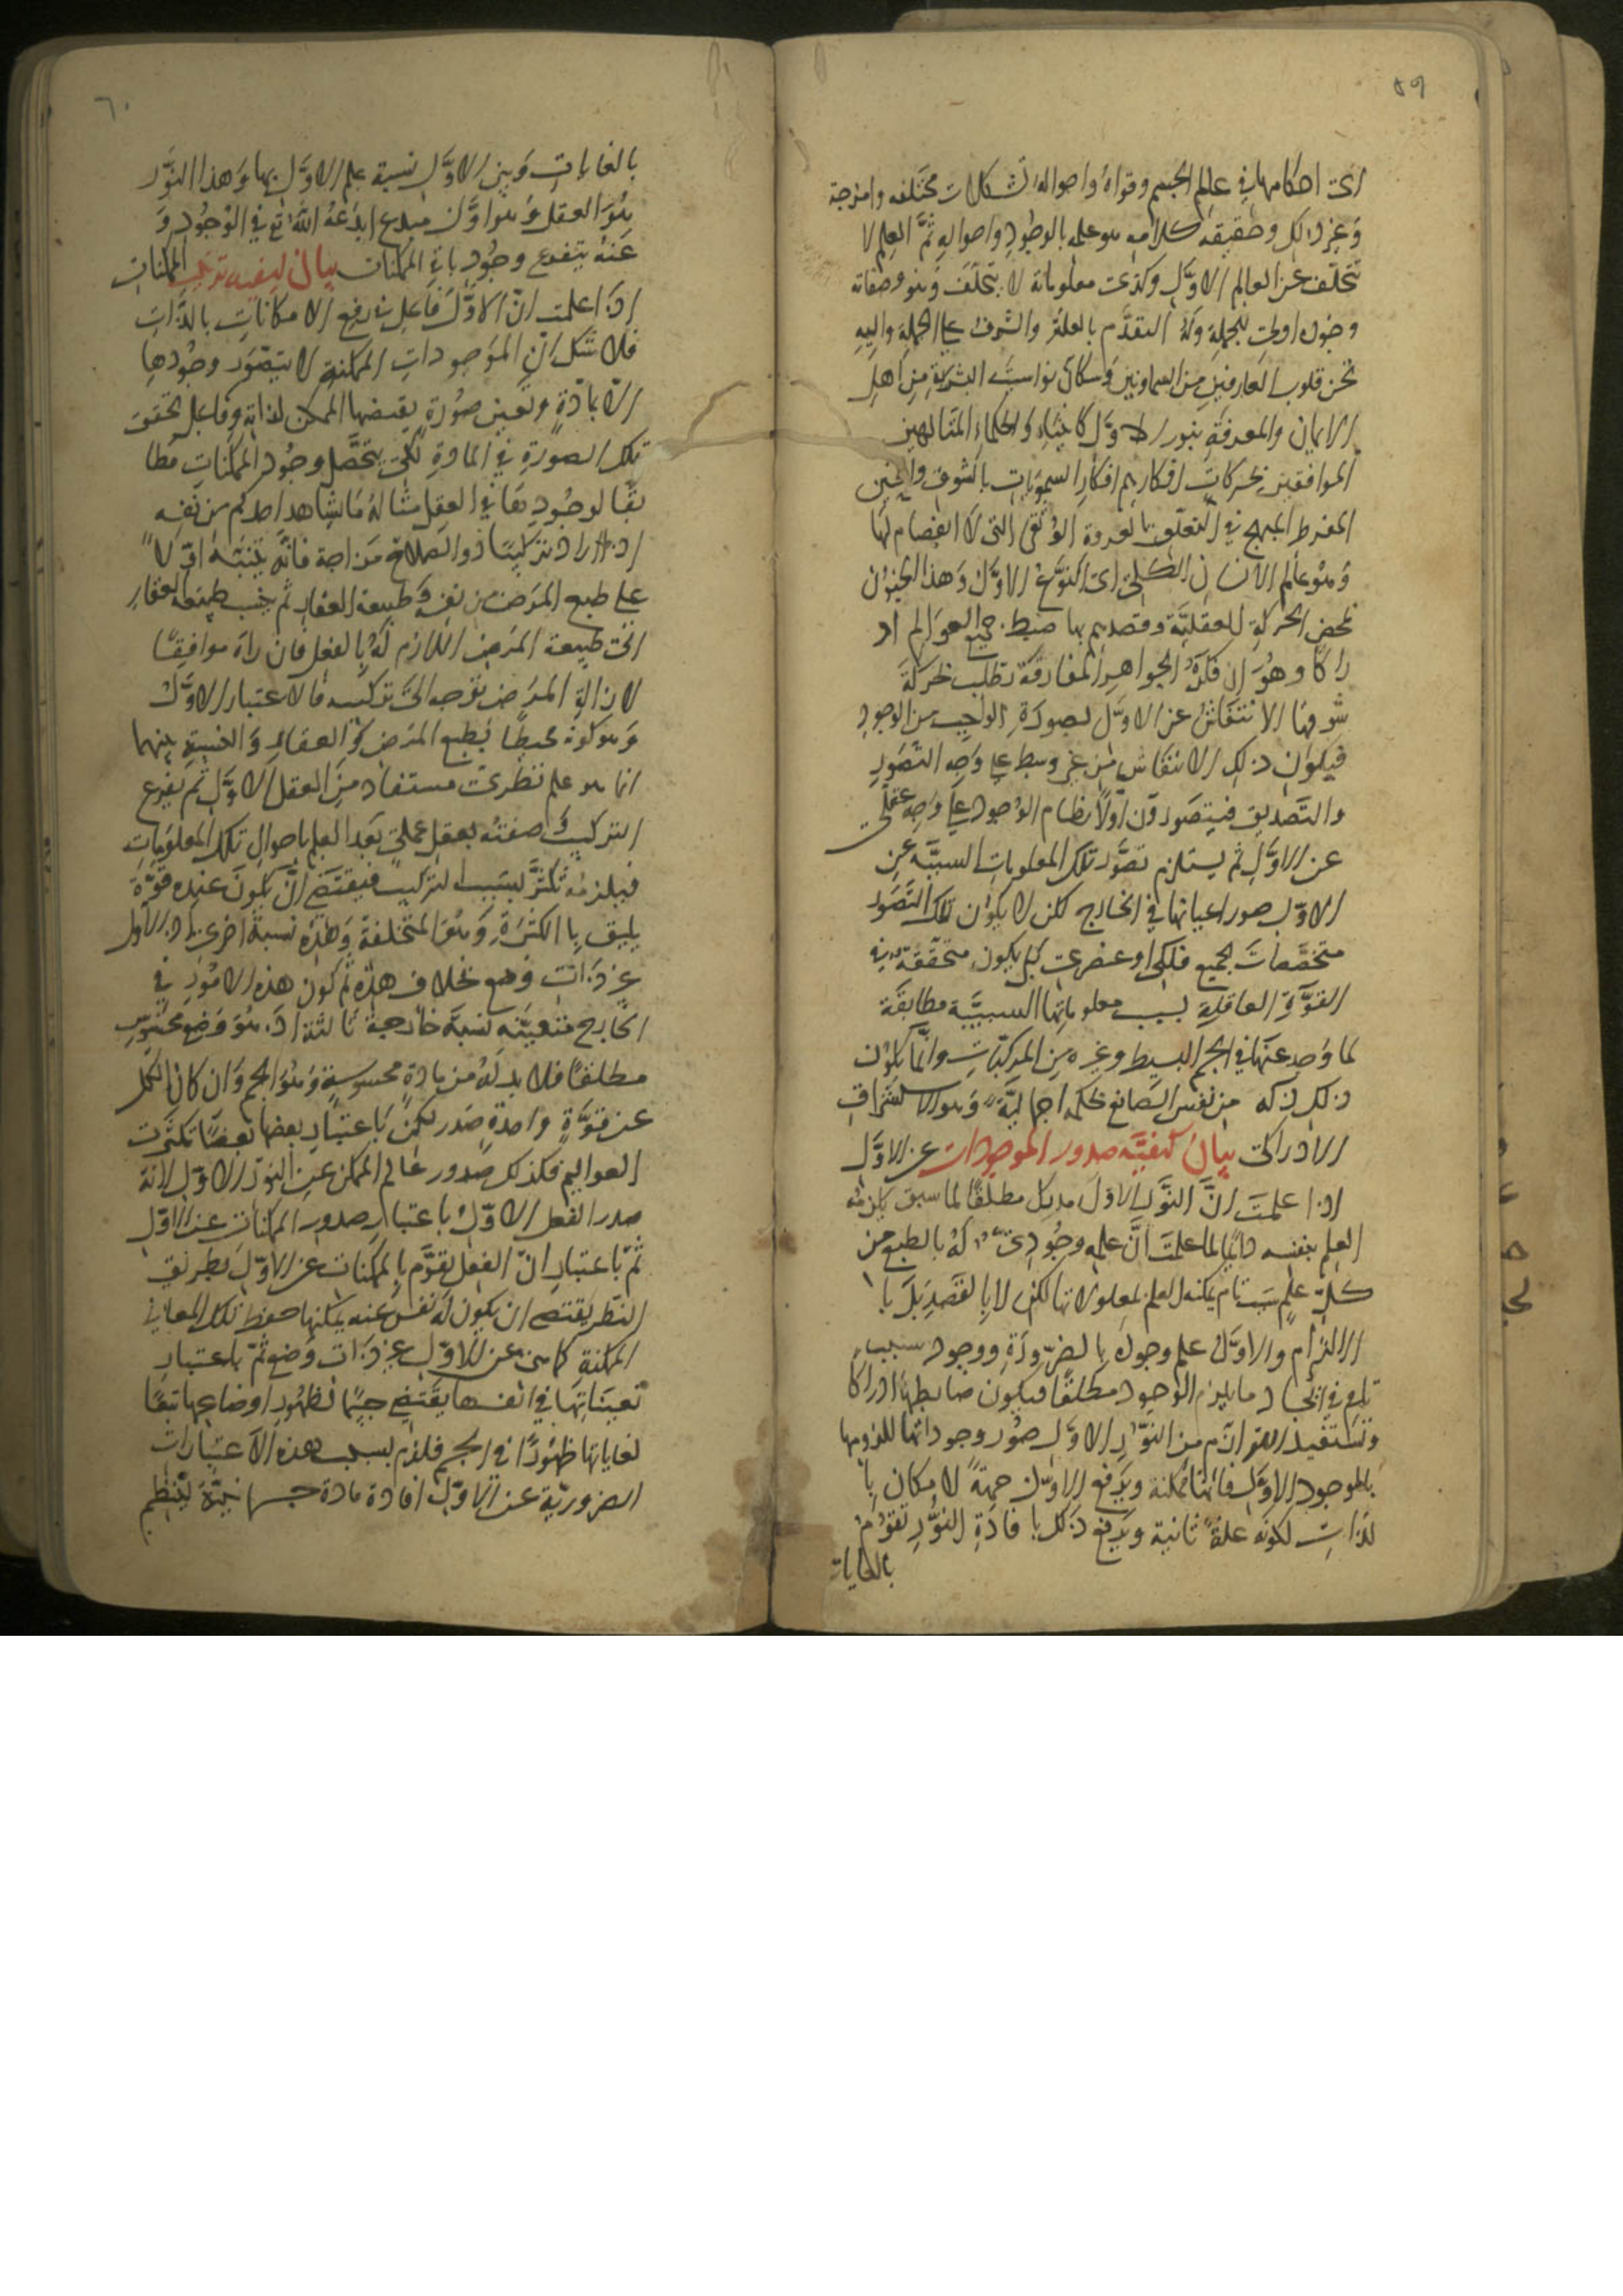 ٥٩
احكامها في عالم الجسم وقواه واحواله تشكلات مختلفه وامزجة
وغير ذلك وحقيقه كلامه هو علمه بالوجود واحواله ثم العلم لا
تتخلف عن العالم الاول وكذى معلوماته لا تتخلف وهو وصفاته
وجود اولى للجملة وله التقدم بالعلة والشرف على الجملة واليه
تحن قلوب العارفين من السماويين وسكان نواسيت البشرية من اهل
الايمان والمعرفة بنور الاول كالانبياء والحكماء المتالهين
الموافقين بحركات افكارهم افكار السمويات بالشوق والحنين
المفرط المبهج في التعلق بالعروة الوثقى التى لا انفصام لها
وهو عالم الانسان الكلى اى النوع الاول وهذا الحنين
محض الحركة العقلية وقصدهم بها ضبط جميع العوالم اد
راكا وهو ان فكرة الجواهر المفارقة تطلب بحركة
شوقها الانتقاش عن الاول بصورة الواجب من الوجود
فيكون ذلك الانتقاش من غير وسط على وجه التصور
والتصديق فيتصورون اولا نظام الوجود على وجه عقلى
عن الاول ثم يستلزم تصور تلك المعلومات السببيه عن
الاول صور اعيانها في الخارج لكن لا يكون تلك التصور
متخصصات لجميع فلكى او عنصرى بل يكون متحققة في
القوة العاقلة بسبب معلوماتها السببية مطابقة
لما وجد عنها في الجرم البسيط وغيره من المركبات وانما يكون
ذلك لذكه من نفس الصانع بحكمه اجمالية وهو الاستشراق
الادراكى بيان كيفيه صدور الموجودات عن الاول
اذا علمت ان النور الاول مدرك مطلقا لما سبق يلزمه
العلم بنفسه دائما لما علمت ان علمه وجودى له بالطبع من
كل علم سبب تام يمكنه العلم بمعلولاتها لكن لا بالقصد بل با
الالتزام والاول علم وجوده بالضرورة ووجود سبب
تام في ايجاد ما يلزم الوجود مطلقا فيكون ضابطها ادراكا
وتستفيد اللوازم من النور الاول صور وجوداتها للزومها
بالموجود الاول فانها ممكنة ويدفع الاول جهة لامكان با
لذات لكونه علة ثانية ويدفع ذلك بافادة النور تقوم
بالغايات
٦٠
بالغايات وبين الاول نسبة علم الاول بها وهذا النور
هو العقل وهو اول مبدع ابدعه الله تع في الوجود و
عنه يتفرع وجود باقي الممكنات بيان كيفيه تركيب الممكنات
اذا علمت ان الاول فاعل في رفع الامكانات بالذات
فلا شك ان الموجودات الممكنة لا يتصور وجودها
الا بمادة وتعين صورة يقتضها الممكن لذاته وفاعل تحقق
تلك الصورة في المادة لكى يتحصل وجود الممكنات مطا
بقا لوجودها في العقل مثاله ما يشاهد احدكم من نفسه
اذا اراد تركيبا دوا لصلاح مزاجه فانه يتنبه اولا
على طبع المرض من نفسه وطبيعة العقار ثم ينسب طبيعه العقار
الى طبيعة المرض اللازم له بالفعل فان راه موافقا
لازالة المرض توجه الى تركيبه فالاعتبار الاول
وهو كونه محيطا بطبع المرض والعقار والنسبة بينهما
انما هو علم نظرى مستفاد من العقل الاول ثم يفرع
التركيب وصفته بعقل عملى بعد العلم باحوال تلك المعلومات
فيلزمه تكثر بسبب التركيب فيقتضى ان يكون عنده قوة
يليق بالكثرة وهو المتخلفة وهذه نسبة اخرى اذ الاول
غير ذات وضع بخلاف هذه ثم كون هذه الامور في
الخارج متعينه نسبة خارجية ثالثة اذ هو وضع محسوس
مطلقا فلا بد له من مادة محسوسة وهو الجرم وان كان الكل
عن قوة واحدة صدر لكن باعتبار بعضها بعضا تكثرت
العواليم فكذلك صدور عالم الممكن عن النور الاول لانه
صدر الفعل الاول باعتبار صدور الممكنات عن الاول
ثم باعتبار ان الفعل يقوم بالممكنات عن الاول بطريق
النظر يقتضى ان يكون له نفس عنه يمكنها حفظ تلك المعانى
الممكنة كما سن عن الاول غير ذات وضع ثم باعتبار
تعيناتها في انفسها يقتضى جسما لظهور اوضاعها تبعا
لغاياتها ظهورا في الجرم فلزم بسبب هذه الاعتبارات
الضرورية عن الاول افادة مادة جسمانية ينتظم